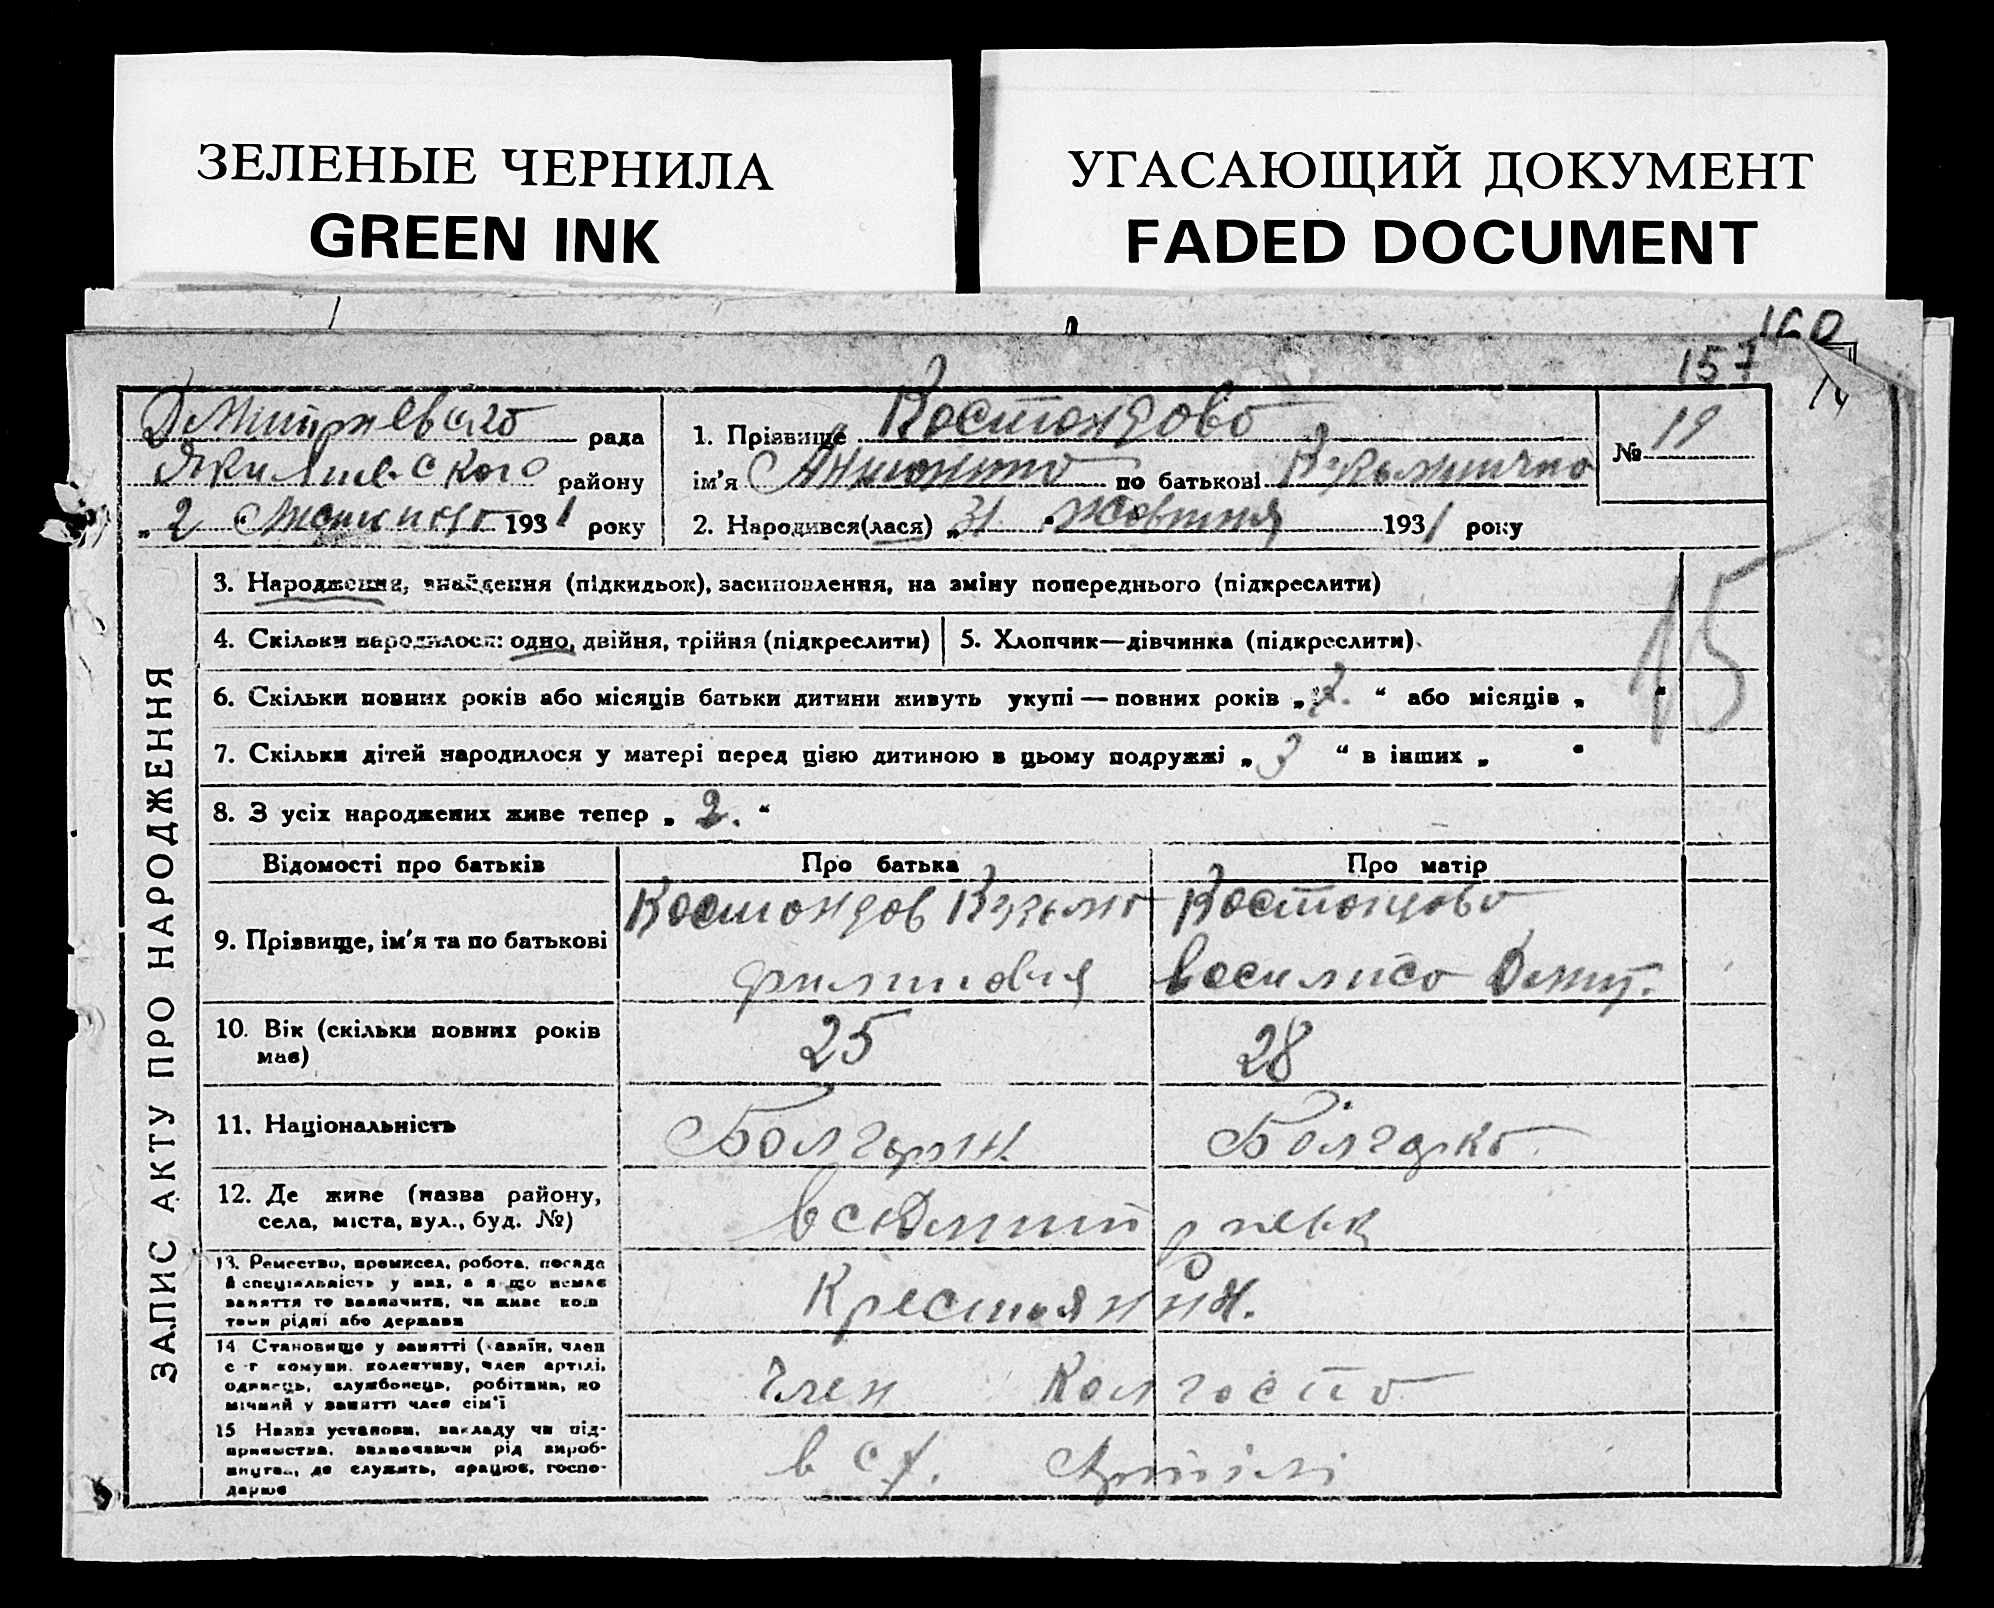 ЗЕЛЕНЫЕ ЧЕРНИЛА
GREEN INK
УГАСАЮЩИЙ ДОКУМЕНТ
FADED DOCUMENT
160
157
14
Дмитриевсого рада
Якимлевского району
„2 “ 1931 року
1. Прізвище Костондово
ім'я по батькові
2. Народився(лася) „31 “ жовтня 1931 року
№ 19
15
ЗАПИС АКТУ ПРО НАРОДЖЕННЯ
3. Народження, знайдення (підкидьок), засиновлення, на зміну попереднього (підкреслити)
4. Скільки народилося: одно, двійня, трійня (підкреслити)
5. Хлопчик—дівчинка (підкреслити).
6. Скільки повних років або місяців батьки дитини живуть укупі — повних років „2.“ або місяців „ “
7. Скільки дітей народилося у матері перед цією дитиною в цьому подружжі „3 “ в інших „ “
8. З усіх народжених живе тепер „ 2. “
Відомості про батьків
Про батька
Про матір
9. Прізвище, ім'я та по батькові
Костондов Кузьмо
Филипович
Костондово
Василисо Дмит.
10. Вік (скільки повних років
має)
25
28
11. Національність
Болгарин
Болгарко
12. Де живе (назва району,
села, міста, вул., буд. №)
13. Ремество, промисел, робота, посада
й спеціяльність у них, а якщо немає
заняття то зазначити, чи живе кош
тами рідні або держави
Крестьянин.
14 Становище у занятті (хазяїн, член
с-г комуни, колективу, член артілі,
одинець, службовець, робітник, по
мічний у занятті член сім'ї
член Колгоспо
15 Назва установи, закладу чи під-
приємства, зазначаючи рід вироб-
ництва, де служить, працює, госпо-
дарює
в с/г. Артілі